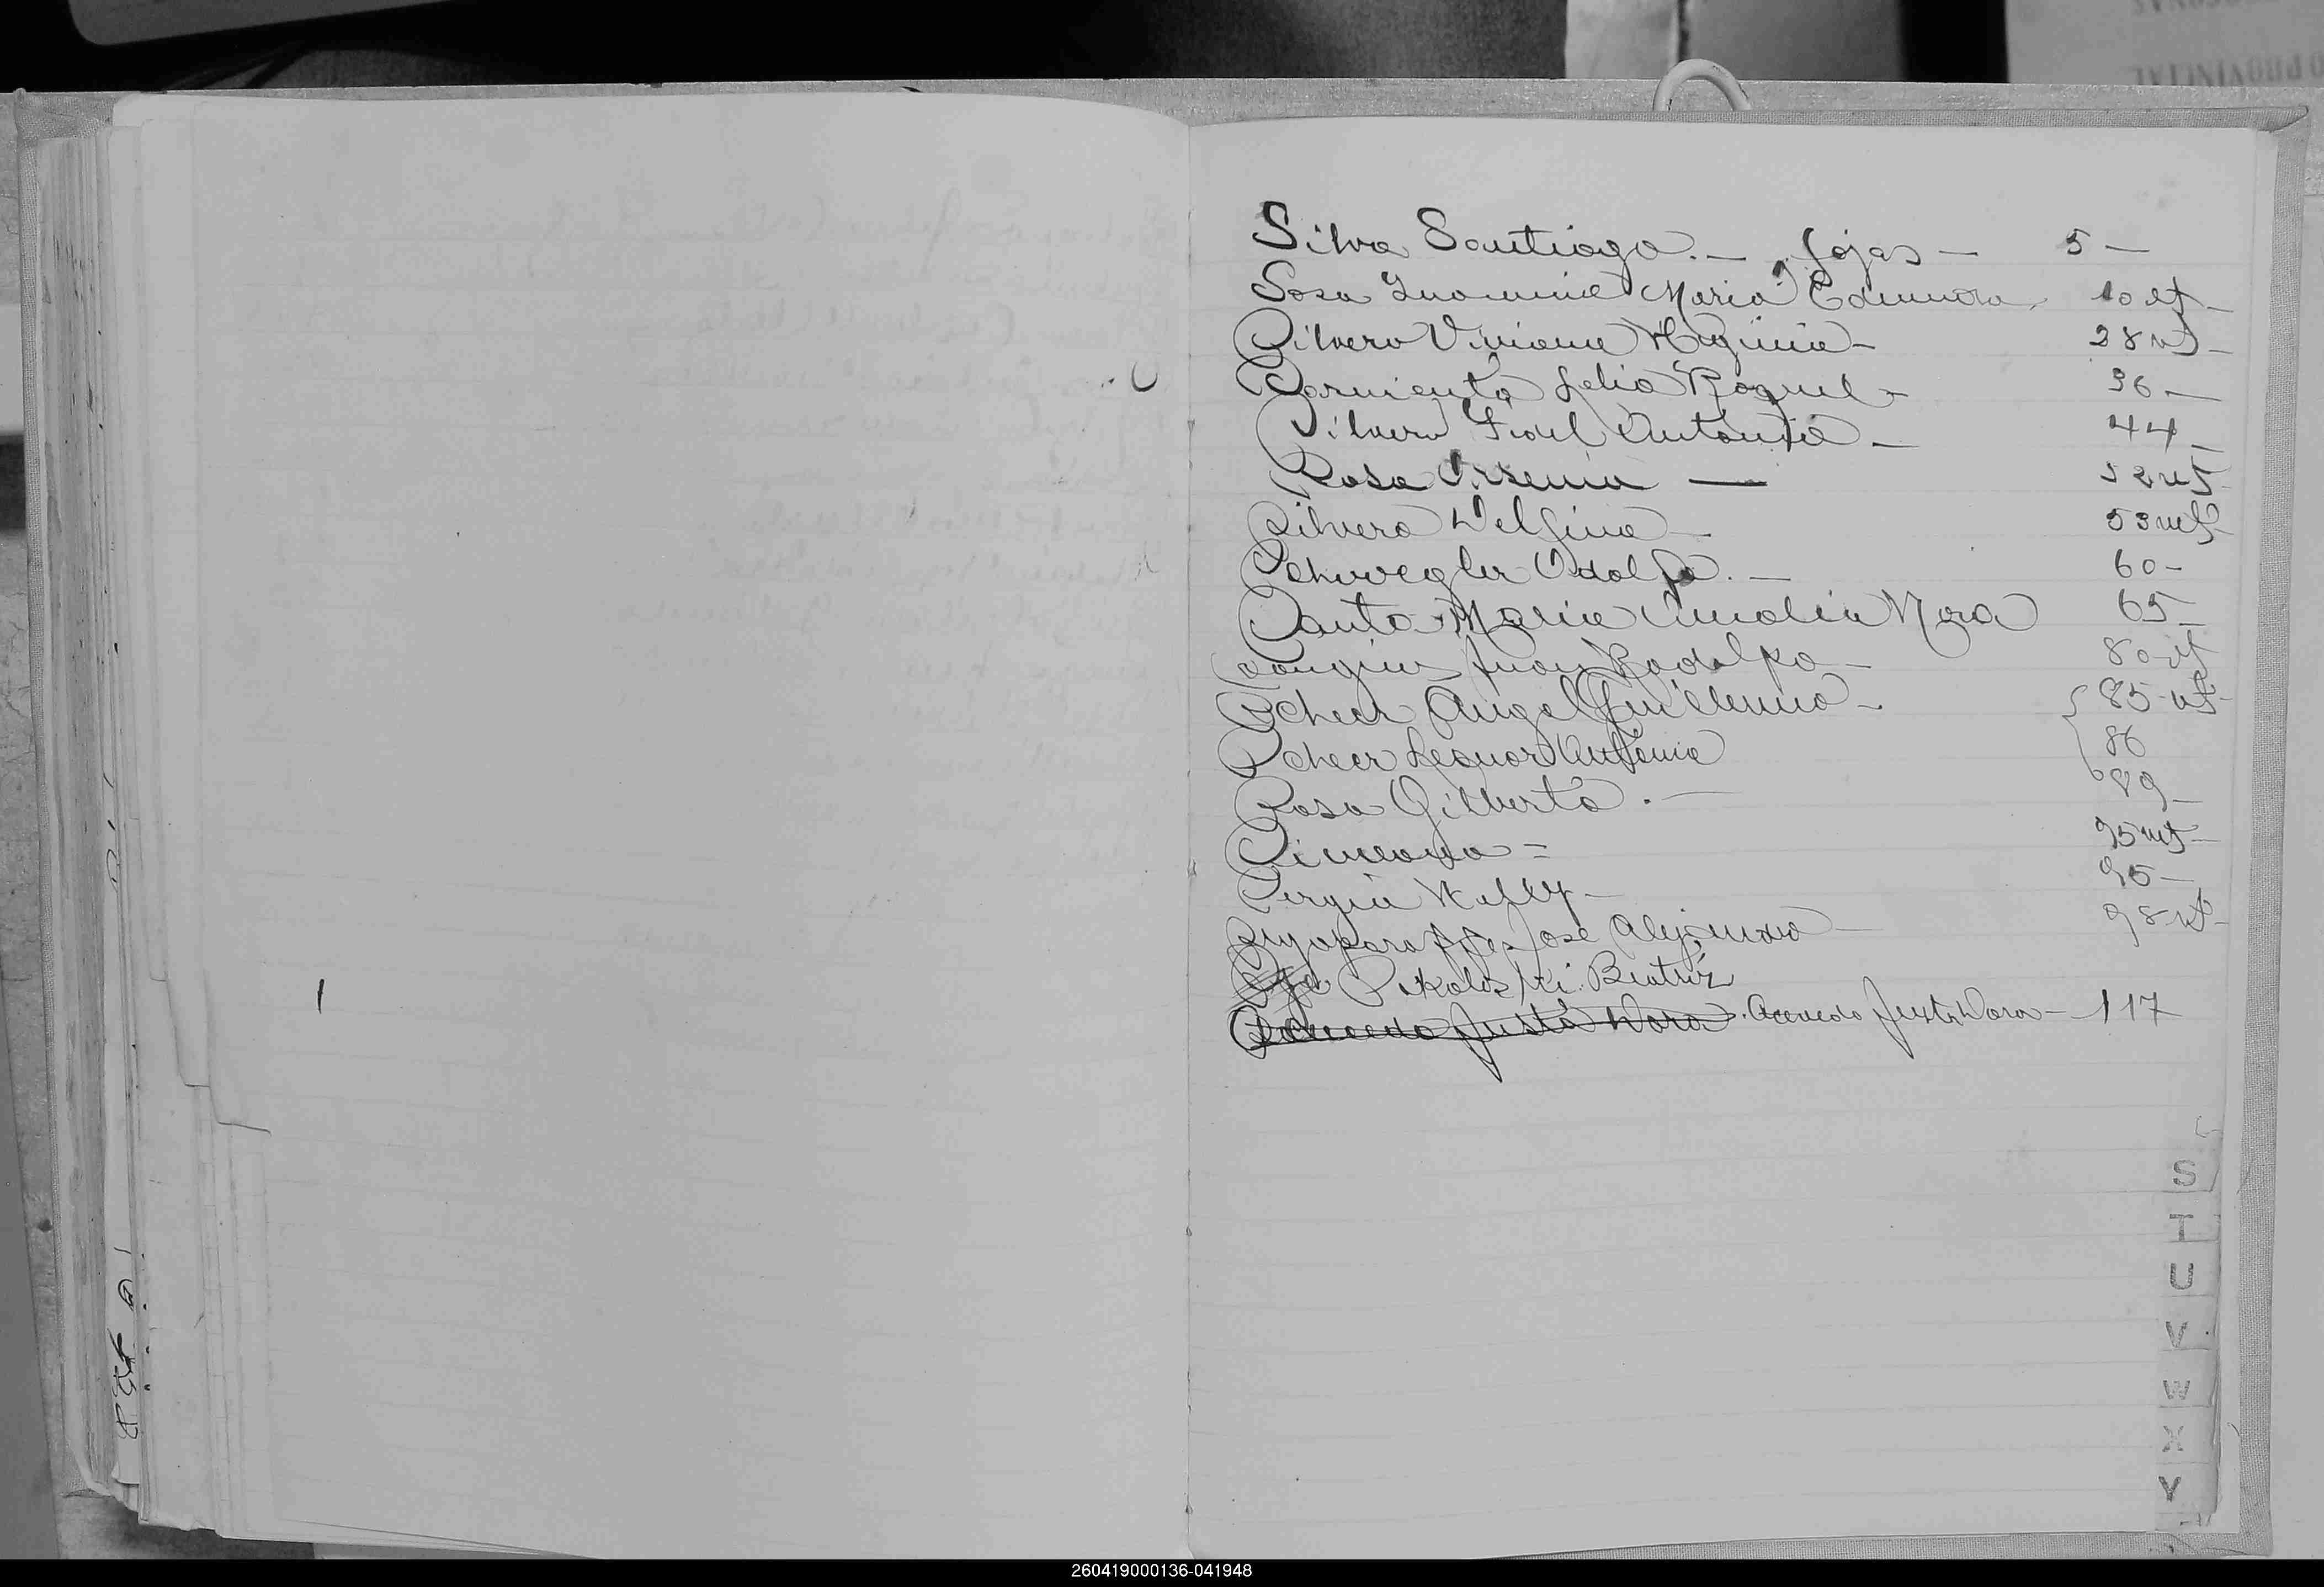 Silva Santiago. — fojas — 5 —
Sosa María Edmunda 10 vt —
Silvero Viviana Higinia — 28 vt —
Sarmiento Lelia Raquel — 36 —
Silvero Fidel Antonio — 44 —
Sosa Arsenia — 52 vt
Silvero Delfina — 53 vt —
Schwegler Adolfo. — 60 —
Santa María Amalia Nora 65 —
Juan Rodolfo — 80 vt
Scheer Angel Guillermo — 85 vt —
Scheer Leonor Antonia 86
Sosa Gilberto. — 89 —
95 vt —
Sergia Nelly — 95 —
José Alejandro — 98 vt —
Beatriz
Acevedo Justa Dora. Acevedo Justa Dora — 117
S
T
U
V
W
X
Y
260419000136-041948